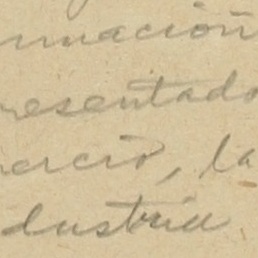 nuación
resentado
ercio, la
dustria